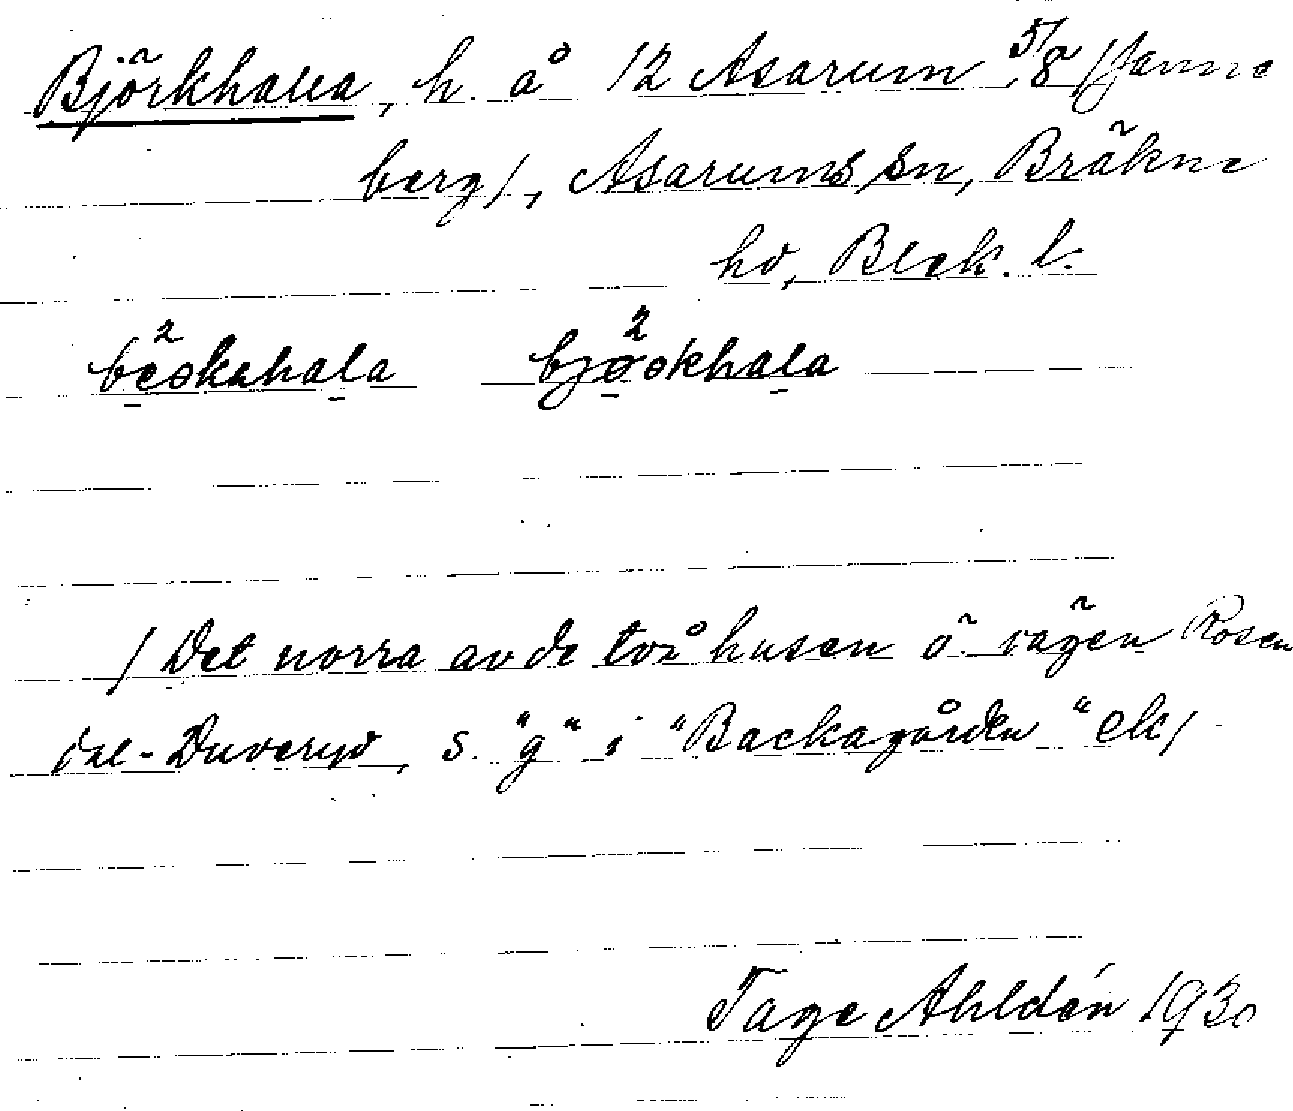 Björkhalla, h. å 12 Asarum 5/8 /Janne
berg/, Asarums sn, Bräkne
hd, Blek. l.
bjöskhala
/Det norra av de två husen ö. vägen Rosen
dal-Duveryd, s. "g" i "Backagården" ek/
Tage Ahldén 1930